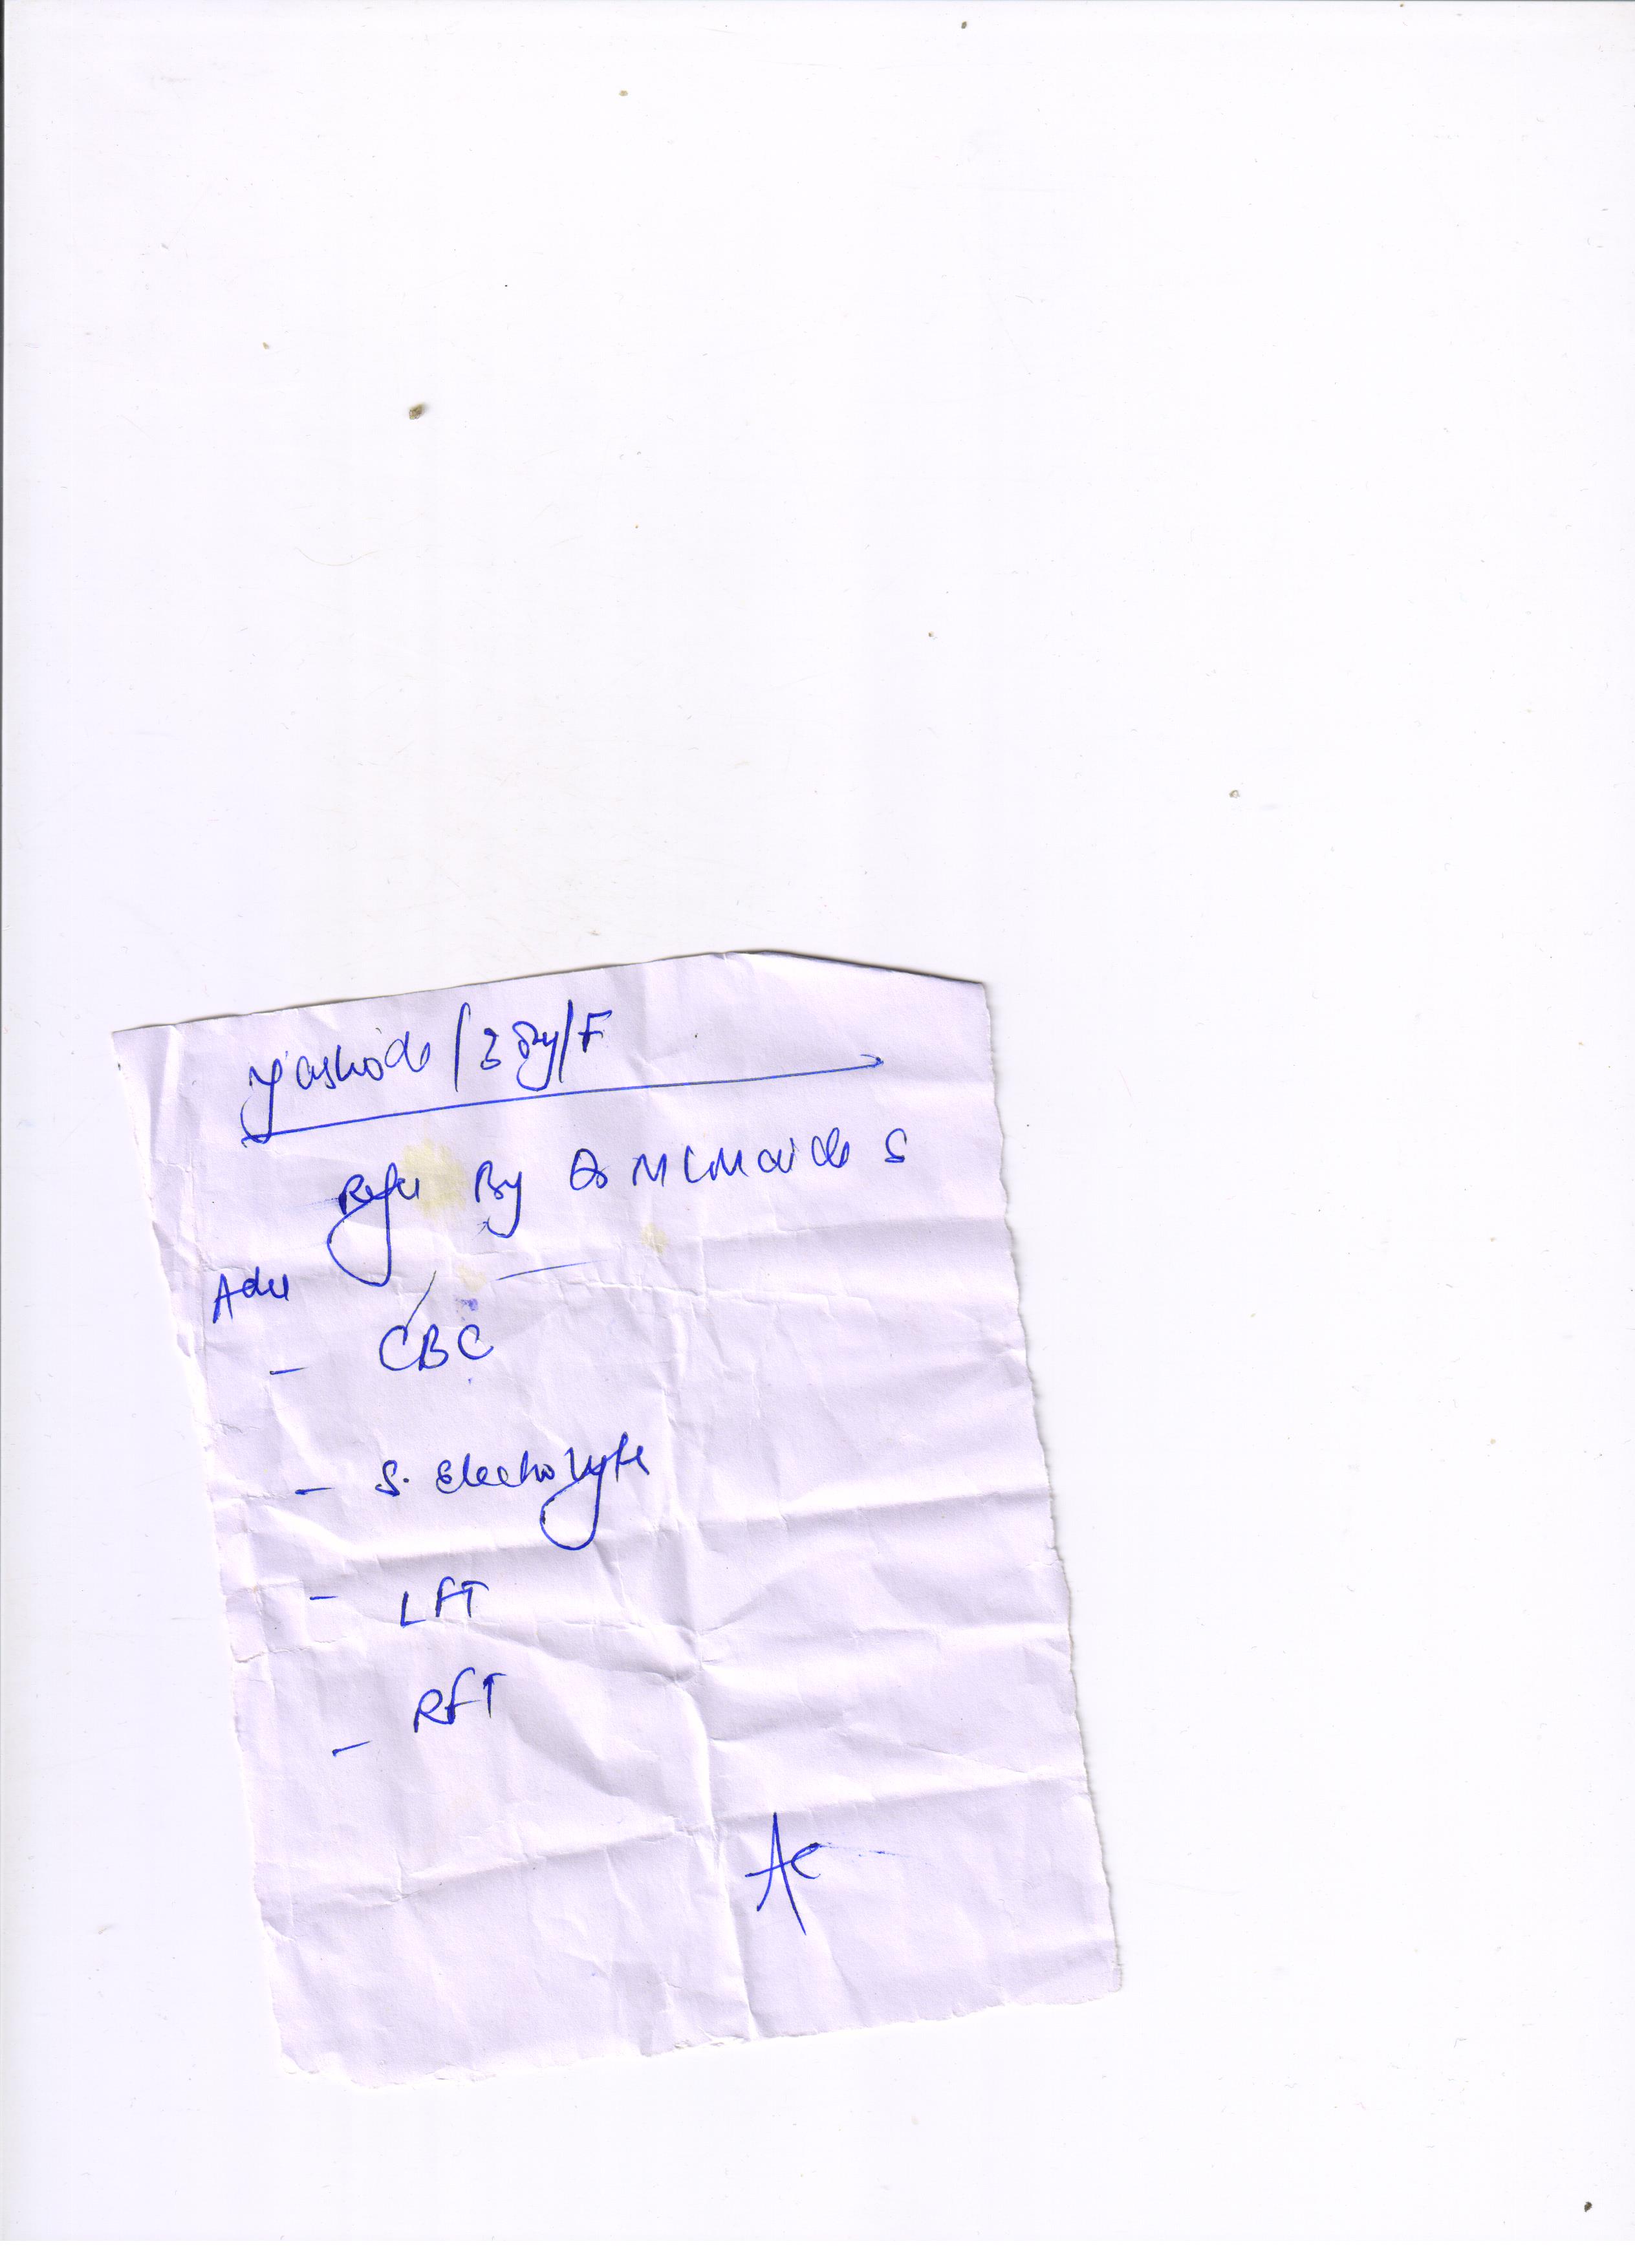 Yashoda / 38y/F
Refer By Dr M L
Adv
- CBC
- S. Electrolyte
- LFT
- RFT